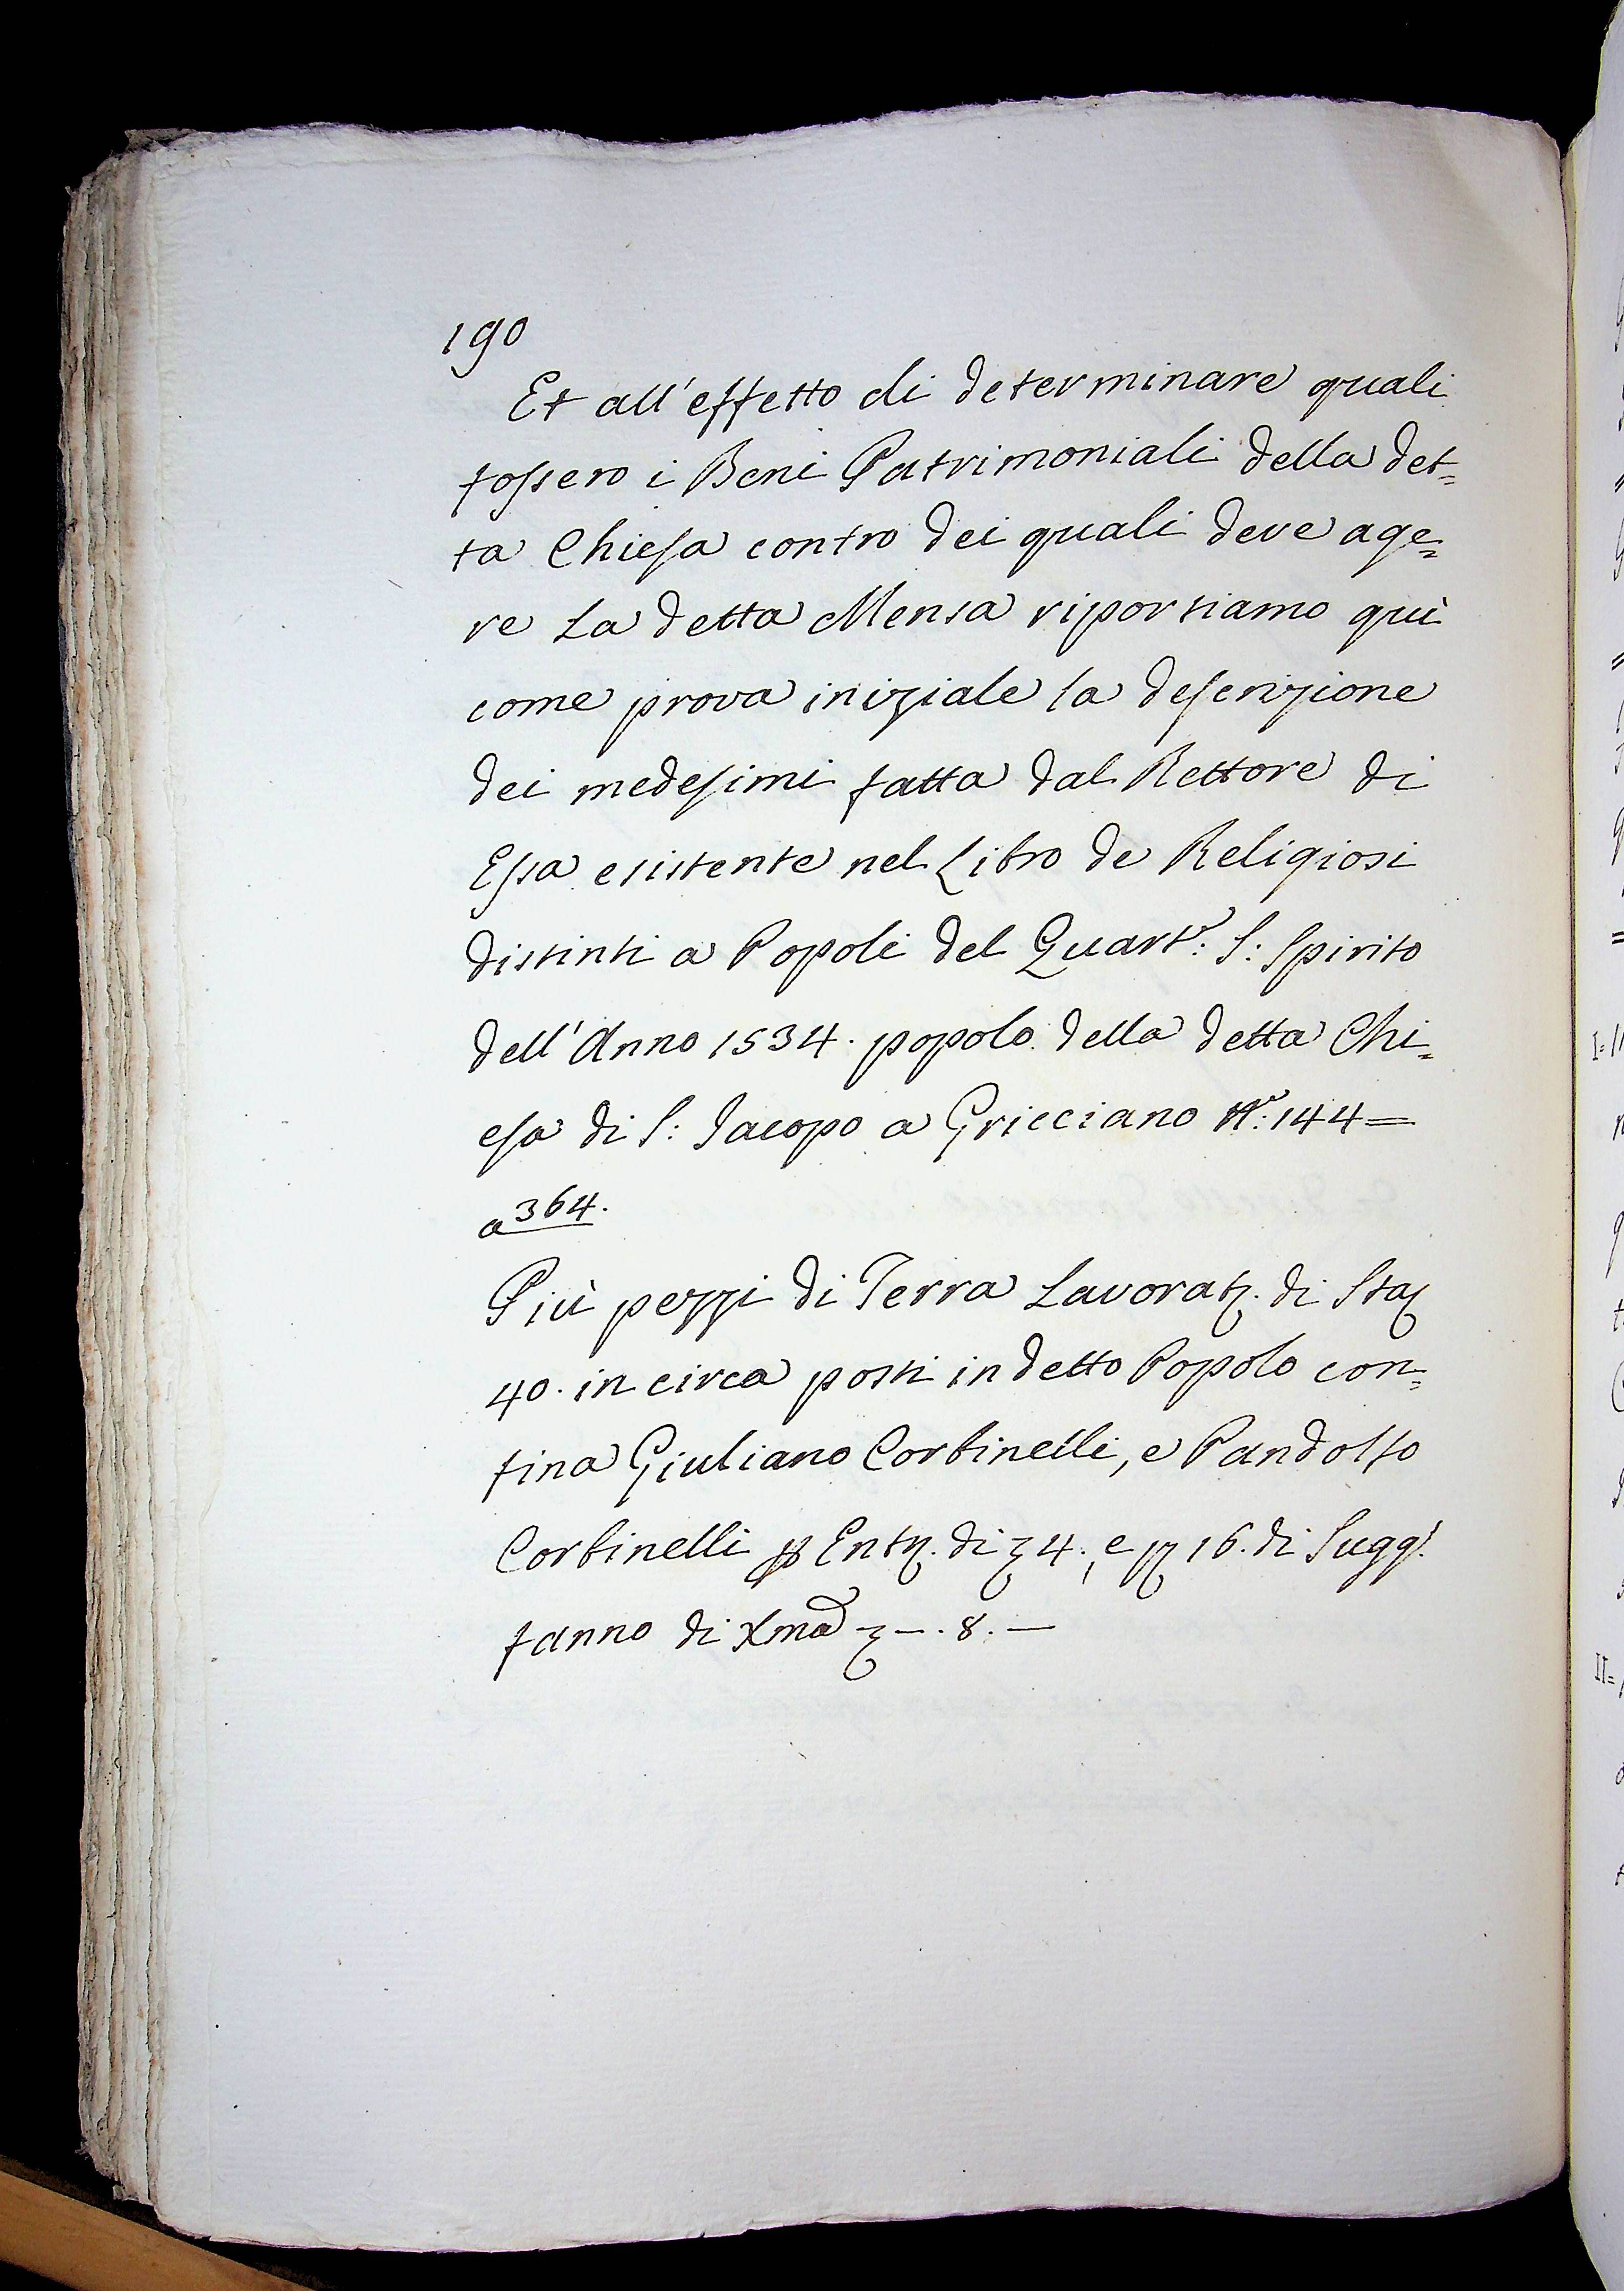 190
Et all'effetto di determinare quali
fossero i Beni Patrimoniali della det=
ta Chiesa contro dei quali deve age=
re La detta Mensa riportiamo quì
come prova iniziale la descrizione
dei medesimi fatta dal Rettore di
Essa esistente nel Libro de Religiosi
distinti a Popoli del Quart.e: S: Spirito
dell'Anno 1534. popolo della detta Chi=
esa di S: Jacopo a Gricciano N.o: 144=
a 364.
Più pezzi di Terra Lavorat. di Sta
40. in circa posti in detto Popolo con=
fina Giuliano Corbinelli, e Pandolfo
Corbinelli p Ent. di 4., e 16. di Sugg.
fanno di Xma —. 8. —